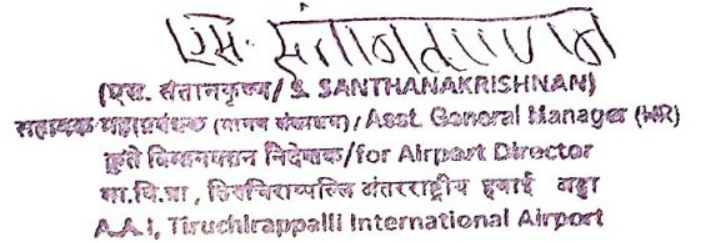 एस. संतानकृष्णन
(एस. संतानकृष्ण/ S. SANTHANAKRISHNAN)
सहायक महाप्रबंधक (मानव संसाधन)/Asst. General Manager (HR)
कृते विमानपत्तन निदेशक/for Airport Director
भा.वि.प्रा , तिरुचिराप्पल्लि अंतरराष्ट्रीय हवाई अड्डा
A.A.I, Tiruchirappalli International Airport